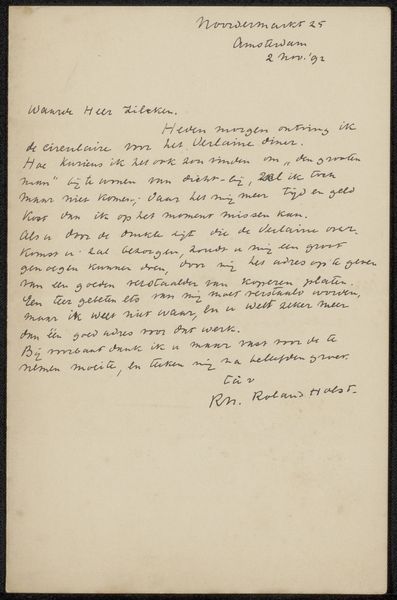 Noordermarkt 25
Amsterdam
2 Nov. '92
Waarde Heer Zilcken.
Heden morgen ontving ik
de circulaire voor het Verlaine diner.
Hoe kurieus ik het ook zou vinden om „den grooten
man" bij te wonen van dicht-bij, zal ik toch
maar niet komen; daar het mij meer tijd en geld
kost dan ik op het moment missen kan.
Als u door de drukte die de Verlaine over
komst u zal bezorgen, zoudt u mij een groot
genoegen kunnen doen, door mij het adres op te geven
van een goeden verstaalder van koperen platen.
Een teer gebeten ets van mij moet verstaald worden,
maar ik weet niet waar, en u weet zeker meer
dan één goed adres voor dat werk.
Bij voorbaat dank ik u maar vast voor de te
nemen moeite, en teken mij na beleefden groet.
t à v
RN. Roland Holst.